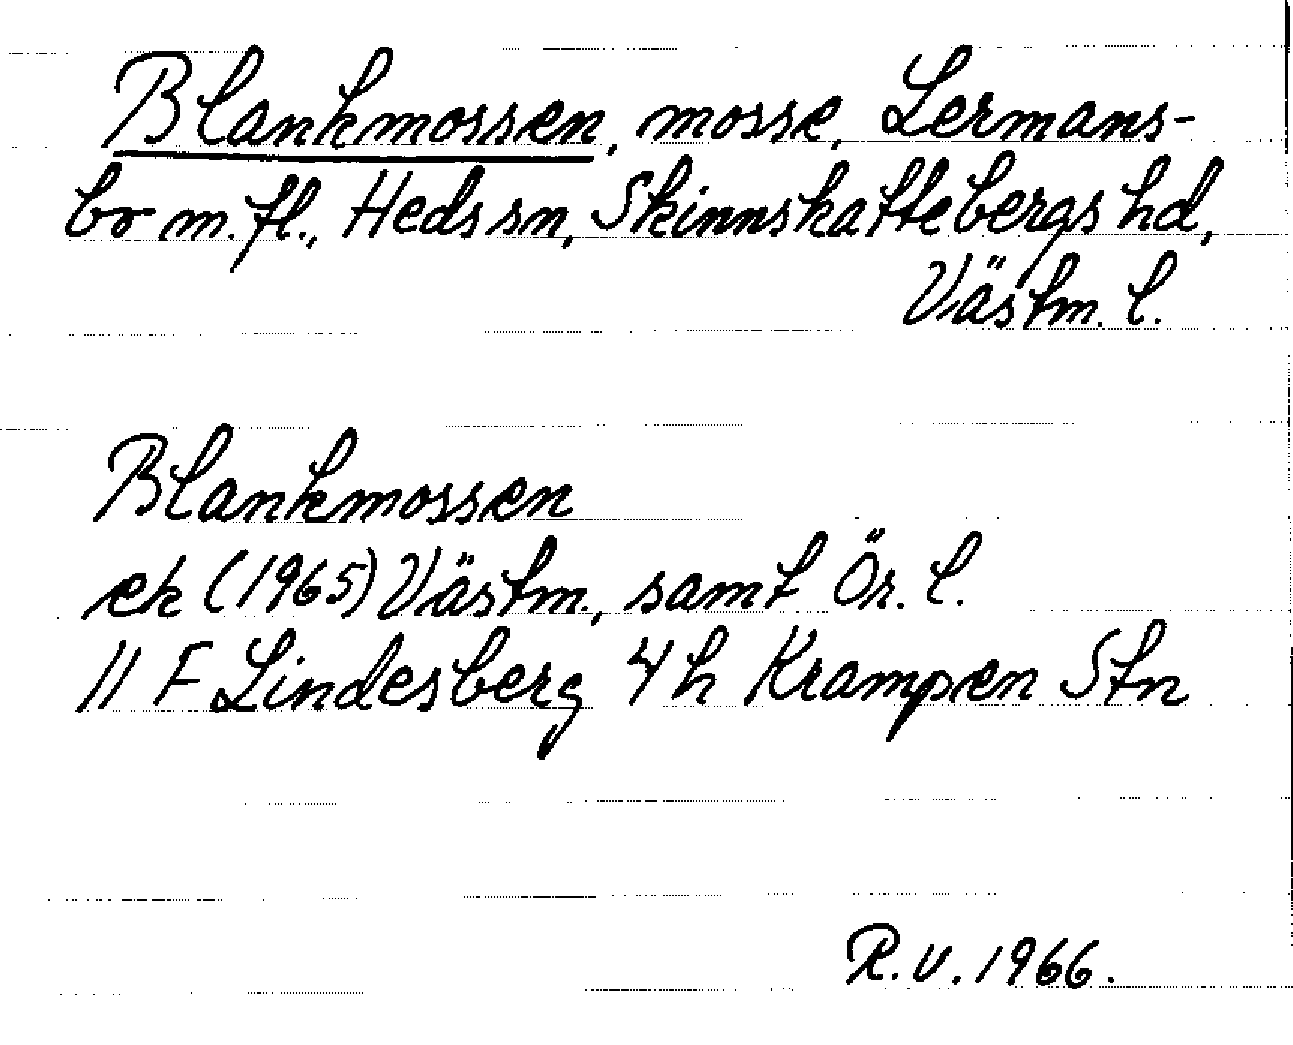 Blankmossen, mosse, Lermans-
bo m.fl., Heds sn, Skinnskattebergs hd,
Västm. l.
Blankmossen
ek (1965) Västm., samt Ör. l.
11 F Lindesberg 4 h Krampen Stn
R.V. 1966.